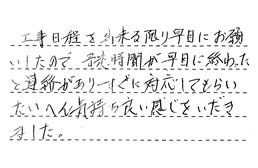 工事日程を出来る限り早目にお願
いしたので、予定時間が早目に終わった
と連絡があり一すぐに対応してもらい
たいへん気持ち良い感じをいだき
ました。